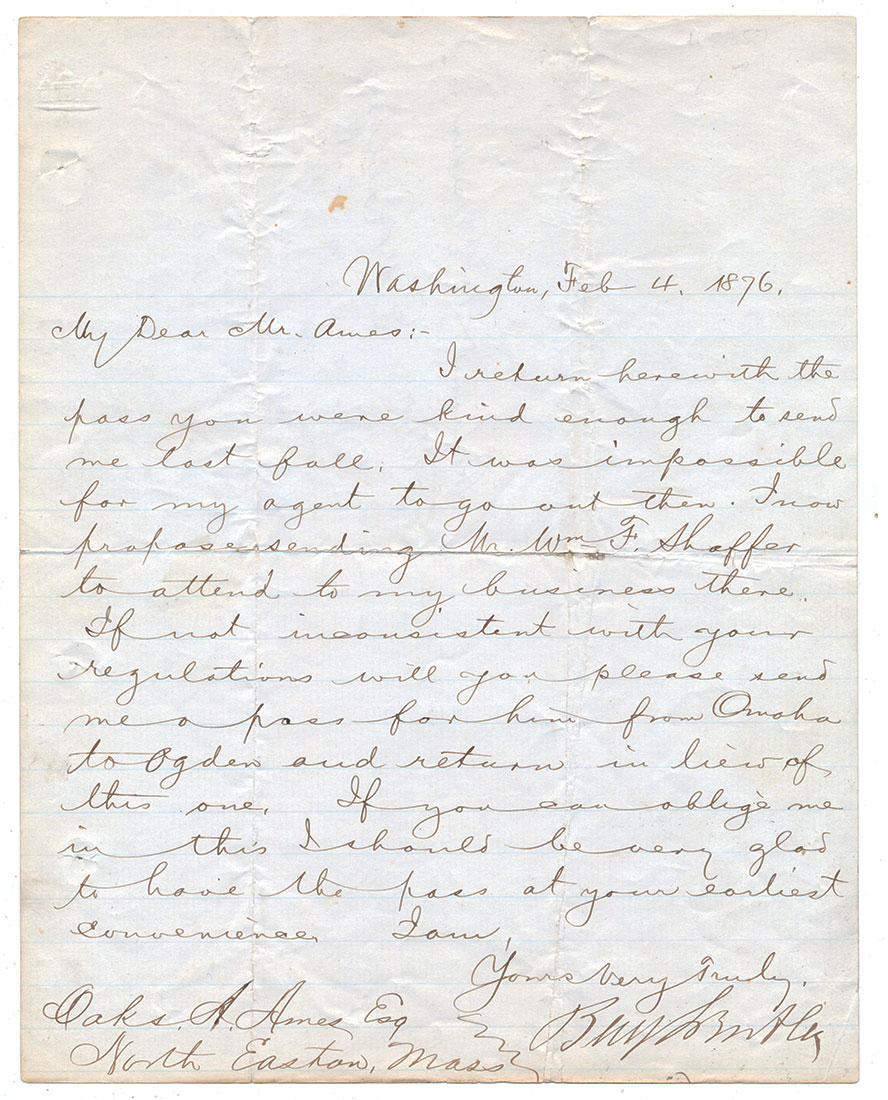 Washington, Feb 4. 1876.
My Dear Mr. Ames:-
I return herewith the
pass you were kind enough to send
me last fall. It was impossible
for my agent to go out then. I now
propose sending Mr. Wm F. Shaffer
to attend to my business there.
If not inconsistent with your
regulations will you please send
me a pass for him from Omaha
to Ogden and return in liew of
this one. If you can oblige me
in this I should be very glad
to have the pass at your earliest
convenience. I am,
Yours Very Truly,
Oaks. A. Ames Esq
Benj F Butler
North Easton, Mass